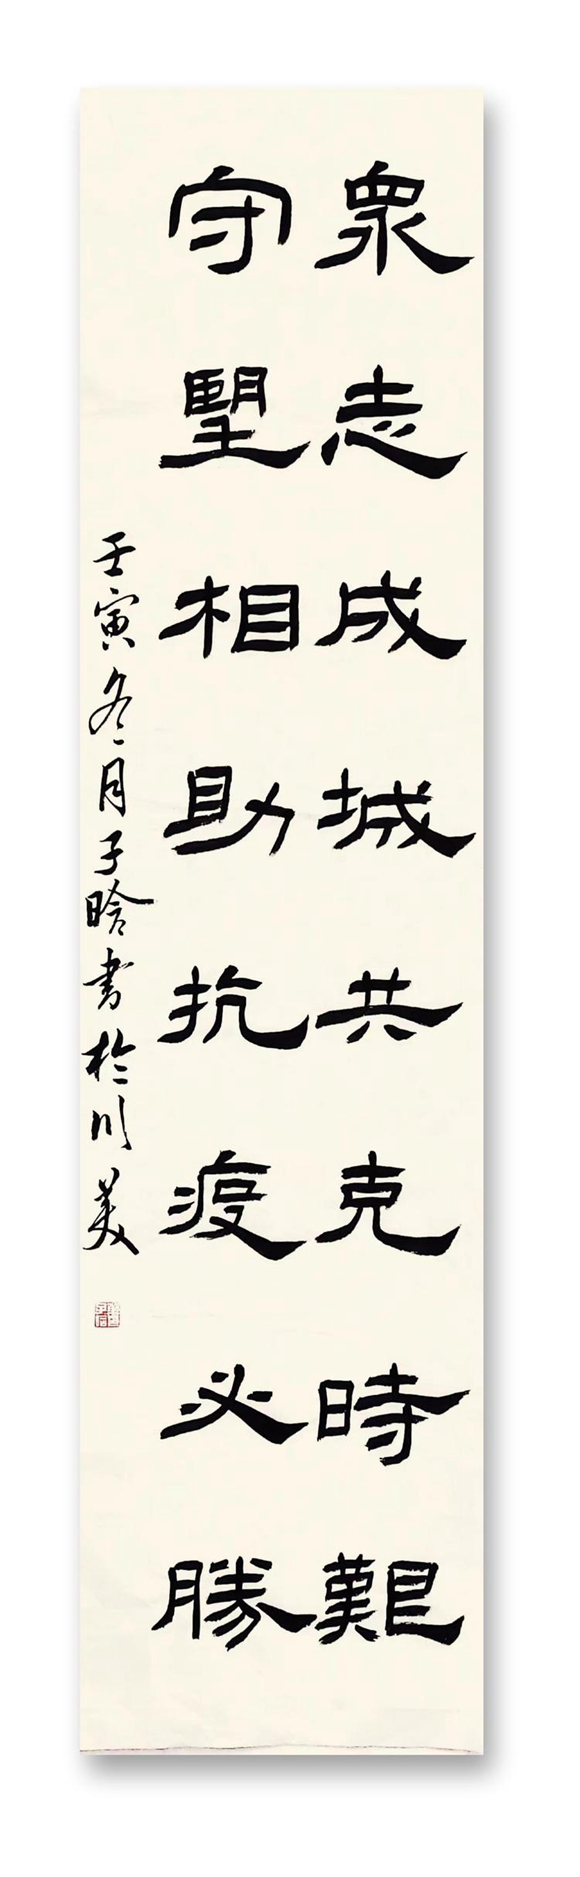 眾志成城共克時艱
守望相助抗疫必勝
壬寅冬月子晗書於川美